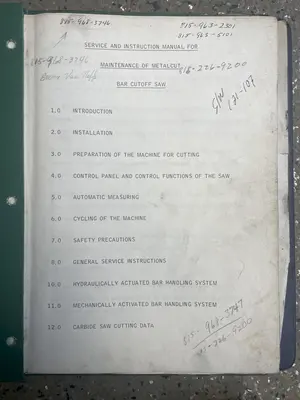 815-963-3746
815-963-2301
815-963-5101
A
SERVICE AND INSTRUCTION MANUAL FOR
MAINTENANCE OF METALCUT
815-226-9200
BAR CUTOFF SAW
S/W
121-107
1.0 INTRODUCTION
2.0 INSTALLATION
3.0 PREPARATION OF THE MACHINE FOR CUTTING
4.0 CONTROL PANEL AND CONTROL FUNCTIONS OF THE SAW
5.0 AUTOMATIC MEASURING
6.0 CYCLING OF THE MACHINE
7.0 SAFETY PRECAUTIONS
8.0 GENERAL SERVICE INSTRUCTIONS
10.0 HYDRAULICALLY ACTIVATED BAR HANDLING SYSTEM
11.0 MECHANICALLY ACTIVATED BAR HANDLING SYSTEM
12.0 CARBIDE SAW CUTTING DATA
815-963-3747
815-226-9200